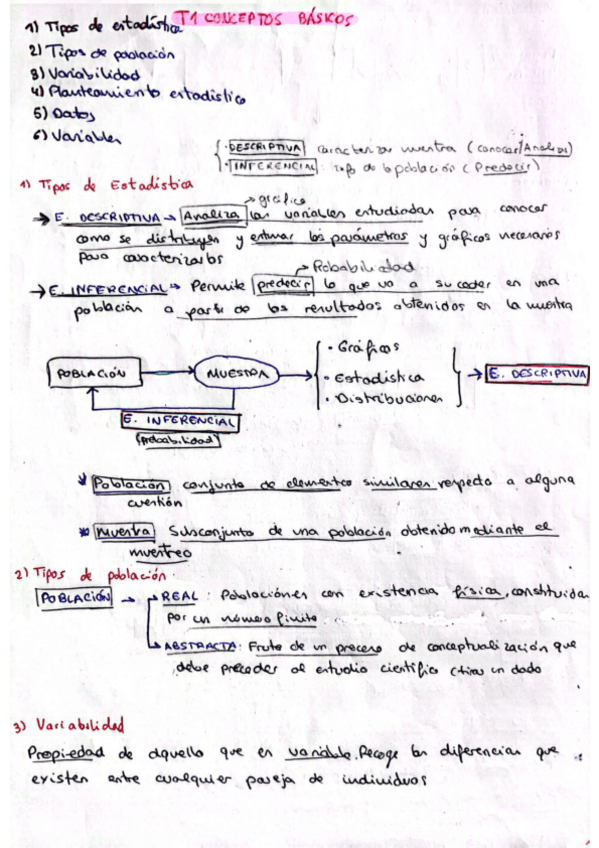 T1 CONCEPTOS BÁSICOS
1) Tipos de estadística
2) Tipos de población
3) Variabilidad
4) Planteamiento estadístico
5) Datos
6) Variables
· DESCRIPTIVA caracterizar muestra (conocer/Analizar)
· INFERENCIAL: de la población (Predecir)
1) Tipos de Estadística
→ gráfica
→ E. DESCRIPTIVA → Analiza las variables estudiadas para conocer
como se distribuyen y estimar los parámetros y gráficos necesarios
para caracterizarlos
→ Probabilidad
→ E. INFERENCIAL → Permite predecir lo que va a suceder en una
población a partir de los resultados obtenidos en la muestra
POBLACIÓN → MUESTRA →
· Gráficos
· Estadística
· Distribuciones
→ E. DESCRIPTIVA
E. INFERENCIAL
(Probabilidad)
* Población conjunto de elementos similares respecto a alguna
cuestión
* Muestra Subsconjunto de una población obtenido mediante el
muestreo
2) Tipos de población.
POBLACIÓN → REAL: Poblaciones con existencia física, constituida
por un número finito
ABSTRACTA: Fruto de un proceso de conceptualización que
debe preceder al estudio científico (tiras un dado
3) Variabilidad
Propiedad de aquello que es variable. Recoge las diferencias que
existen entre cualquier pareja de individuos